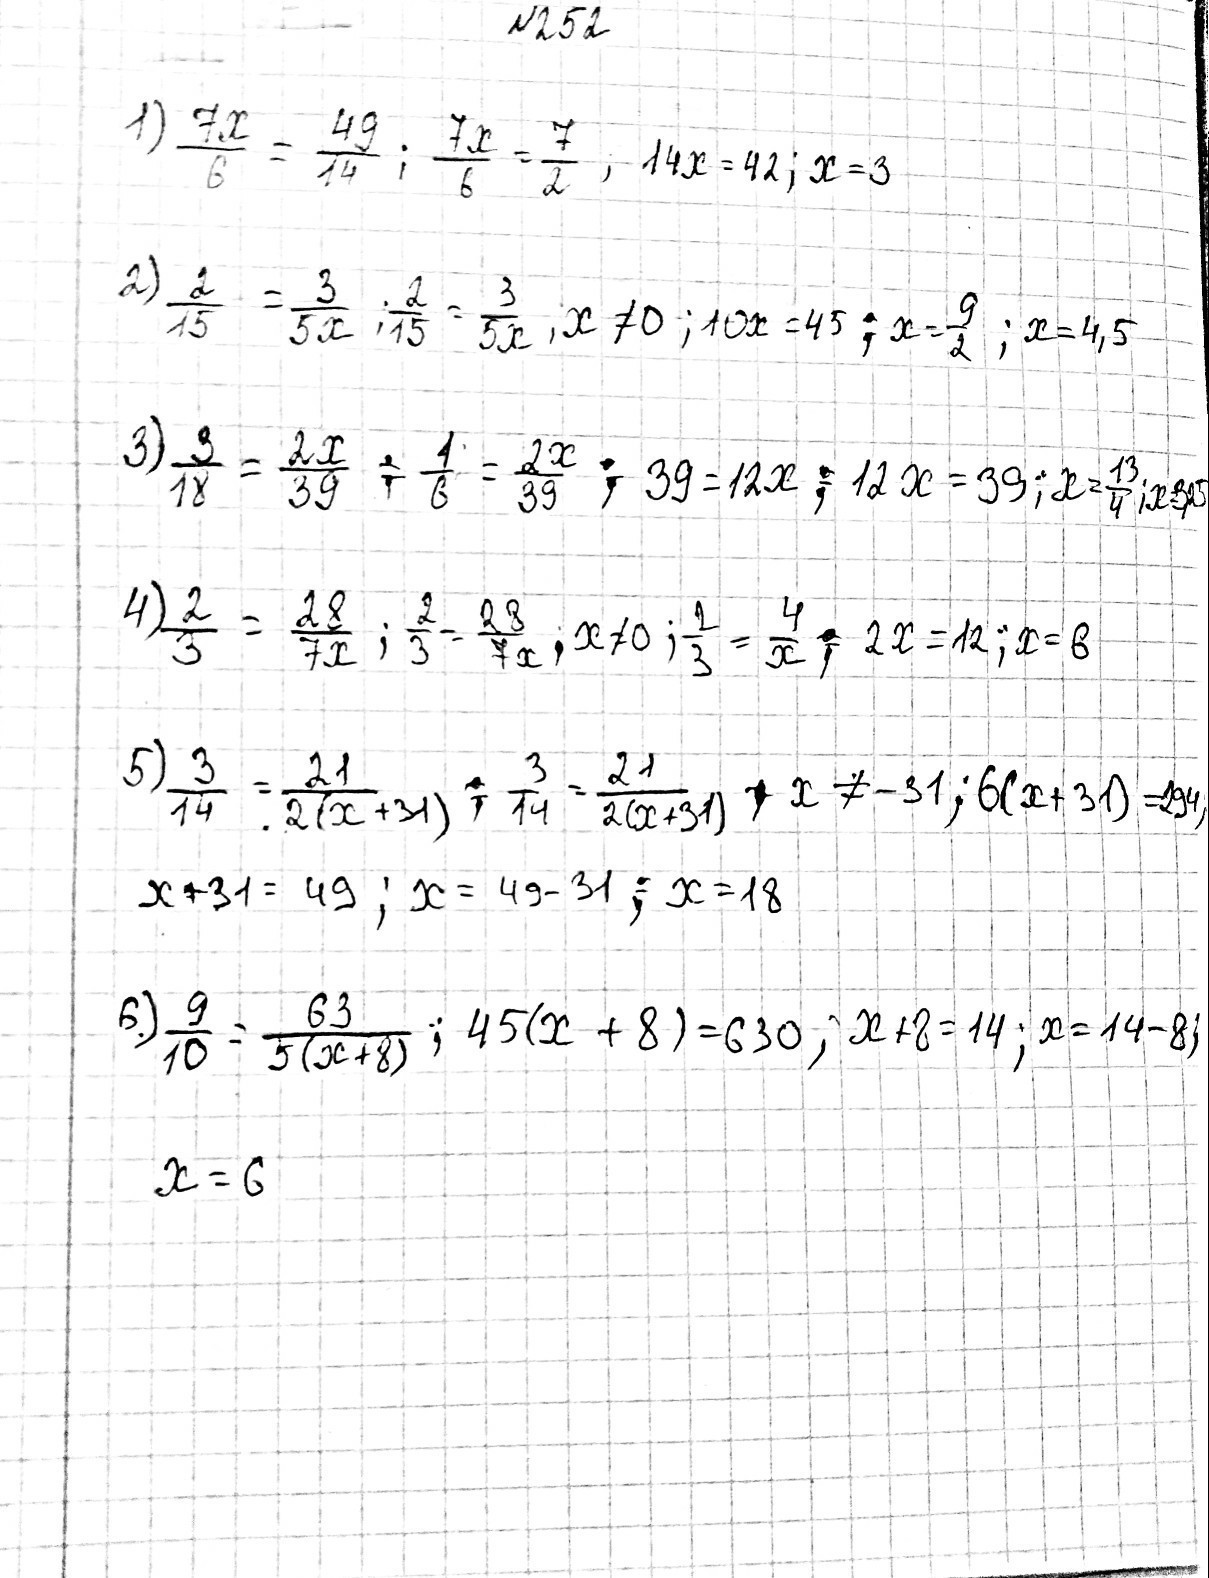 №252
1) 7x/6 = 49/14 ; 7x/6 = 7/2 ; 14x = 42 ; x = 3
2) 2/15 = 3/5x ; 2/15 = 3/5x , x ≠ 0 ; 10x = 45 ; x = 9/2 ; x = 4,5
3) 3/18 = 2x/39 ; 1/6 = 2x/39 ; 39 = 12x ; 12x = 39 ; x = 13/4 ; x = 3,25
4) 2/3 = 28/7x ; 2/3 = 28/7x ; x ≠ 0 ; 2/3 = 4/x ; 2x = 12 ; x = 6
5) 3/14 = 21/2(x+31) ; 3/14 = 21/2(x+31) , x ≠ -31 ; 6(x+31) = 294;
x+31 = 49 ; x = 49-31 ; x = 18
6.) 9/10 = 63/5(x+8) ; 45(x + 8) = 630 ; x+8 = 14 ; x = 14-8;
x = 6